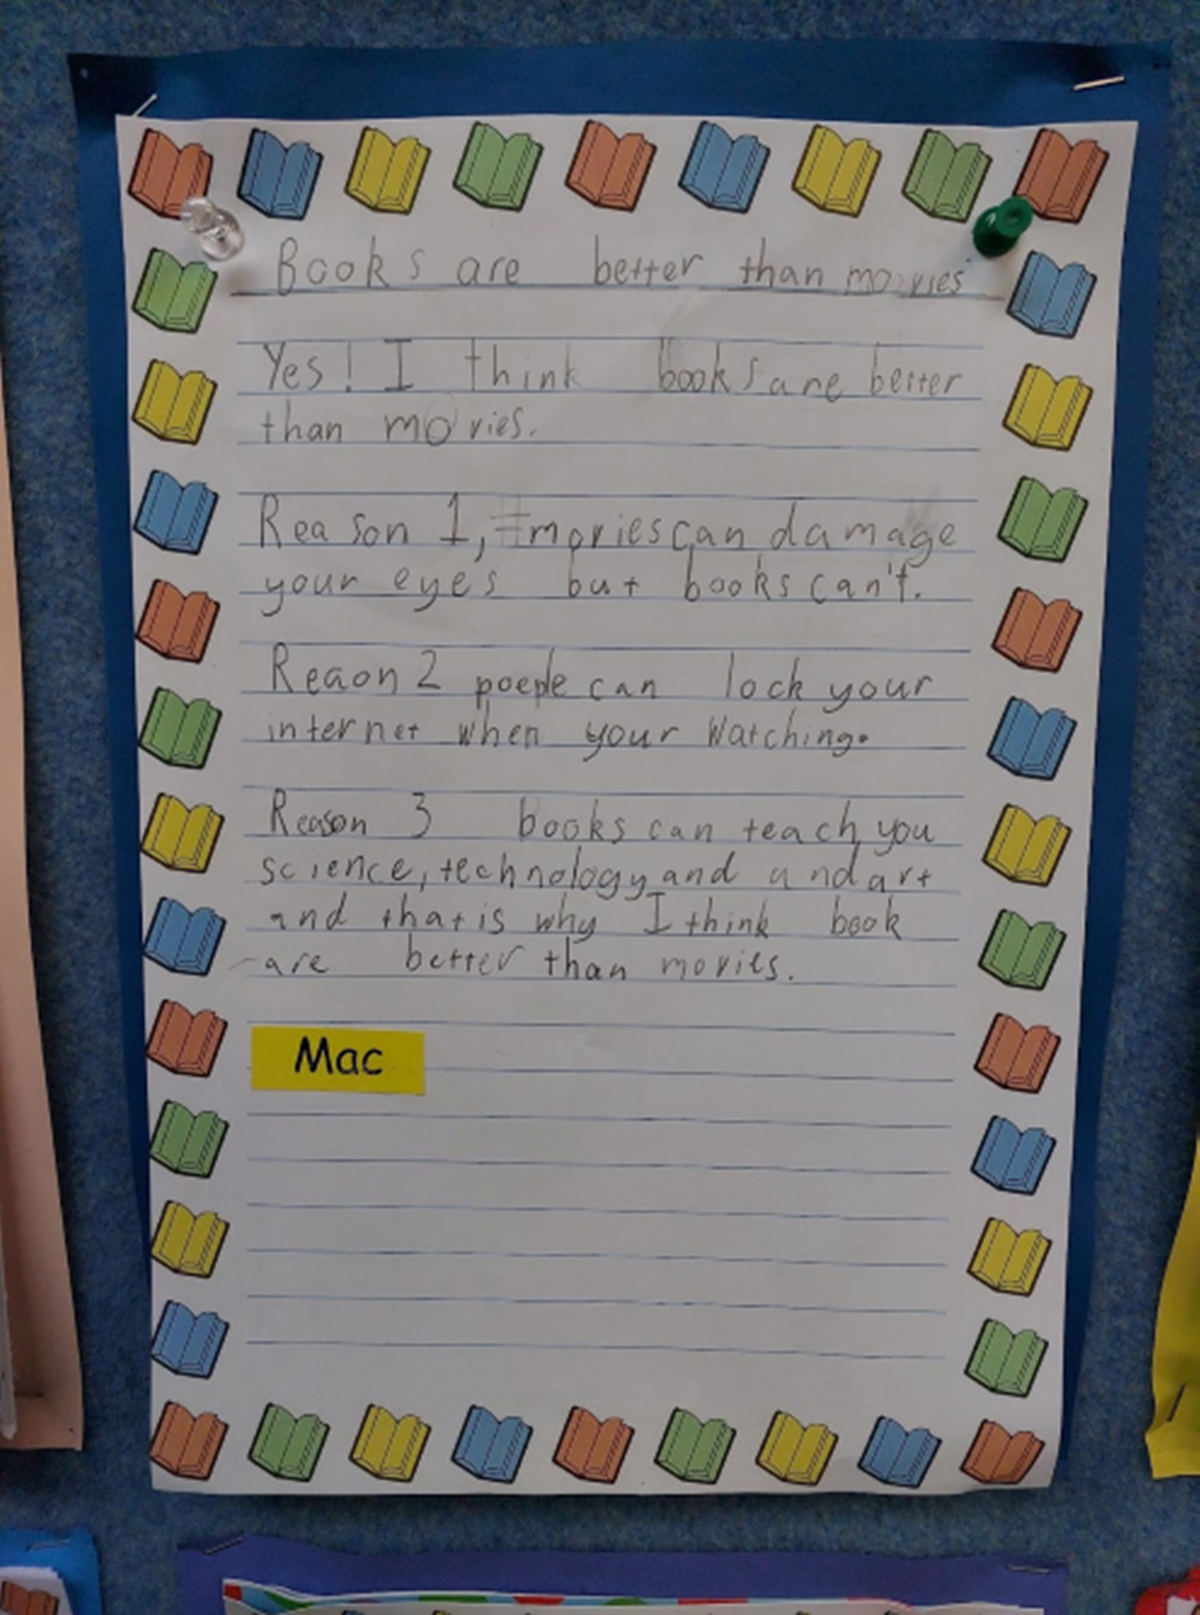 Books are better than movies
Yes! I think books are better
than movies.
Reason 1, movies can damage
your eyes but books can't.
Reaon 2 poeple can lock your
internet when your watching.
Reason 3 books can teach you
science, technology and and art
and that is why I think book
are better than movies.
Mac